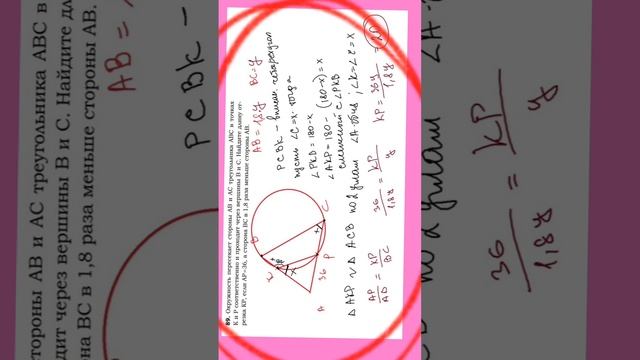 89. Окружность пересекает стороны АВ и АС треугольника АВС в точках
К и Р соответственно и проходит через вершины В и С. Найдите длину от-
резка КР, если АР=36, а сторона ВС в 1,8 раза меньше стороны АВ.
AB = 1,8y BC = y
PCBK – впис. четырехугол
пусть ∠C = x тогда
∠PKB = 180 - x
∠AKP = 180 - (180 - x) = x
смежный с ∠PKB
B
K
x
C
A
36
P
△ AKP ∾ △ ACB по 2 углам ∠A - общ, ∠K = ∠C = x
AP/AB = KP/BC
36/1,8y = KP/y
KP = 36y/1,8y = 20
тороны АВ и АС треугольника АВС в
дит через вершины В и С. Найдите дл
на ВС в 1,8 раза меньше стороны АВ.
AB =
PCBK –
по 2 углам ∠A
36/1,8y = KP/y